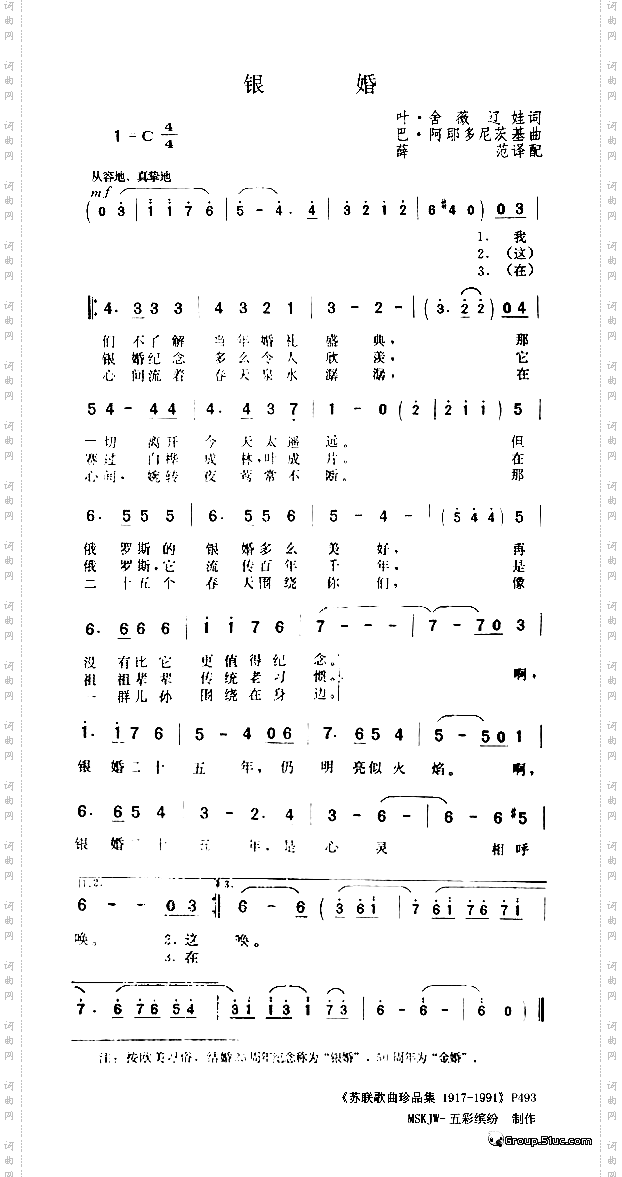 银 婚
叶·舍薇辽娃词
1-C 4/4
巴·阿耶多尼茨基曲
薛 范译配
从容地、真挚地
mf
( 0 3 | i i 7 6 | 5 - 4. 4 | 3 2 1 2 | 6 #4 0 ) 0 3
1. 我
2.(这)
3.(在)
4. 3 3 3 | 4 3 2 1 | 3 - 2 - | (3. 2 2) 0 4
们 不了解 当年婚礼 盛 典, 那
银 婚纪念 多么令人 欣 羡, 它
心 间流着 春天泉水 潺 潺, 在
5 4 - 4 4 | 4. 4 3 7 | 1 - 0 (2 | 2 i i) 5
一切 离开 今 天太遥 远。 但
寒过 白桦 成 林,叶成 片。 在
心间, 婉转 夜 莺常不 断。 那
6. 5 5 5 | 6. 5 5 6 | 5 - 4 - | (5 4 4) 5
俄 罗斯的 银 婚多么 美 好, 再
俄 罗斯,它 流 传百年 千 年, 是
二 十五个 春 天围绕 你 们, 像
6. 6 6 6 | i i 7 6 | 7 - - - | 7 - 7 0 3
没 有比它 更值得纪 念。
祖 祖辈辈 传统老习 惯。 啊,
一 群儿孙 围绕在身 边。
i. i 7 6 | 5 - 4 0 6 | 7. 6 5 4 | 5 - 5 0 1
银 婚二十 五 年,仍 明 亮似火 焰。 啊,
6. 6 5 4 | 3 - 2. 2 | 3 - 6 - | 6 - 6 #5
银 婚二十 五 年,是 心 灵 相呼
1.2. 3.
6 - - 0 3 :| 6 - - 6 | (3 6 i | 7 6 i 7 6 7 i
唤。 2.这 唤。
3.在
7. 6 7 6 5 5 | 3 i i 3 i 7 3 | 6 - 6 - | 6 0) ||
注:按欧美习俗,结婚25周年纪念称为“银婚”,50周年为“金婚”.
《苏联歌曲珍品集 1917-1991》P493
MSKJW-五彩缤纷 制作
Group.5iuc.com
词曲网